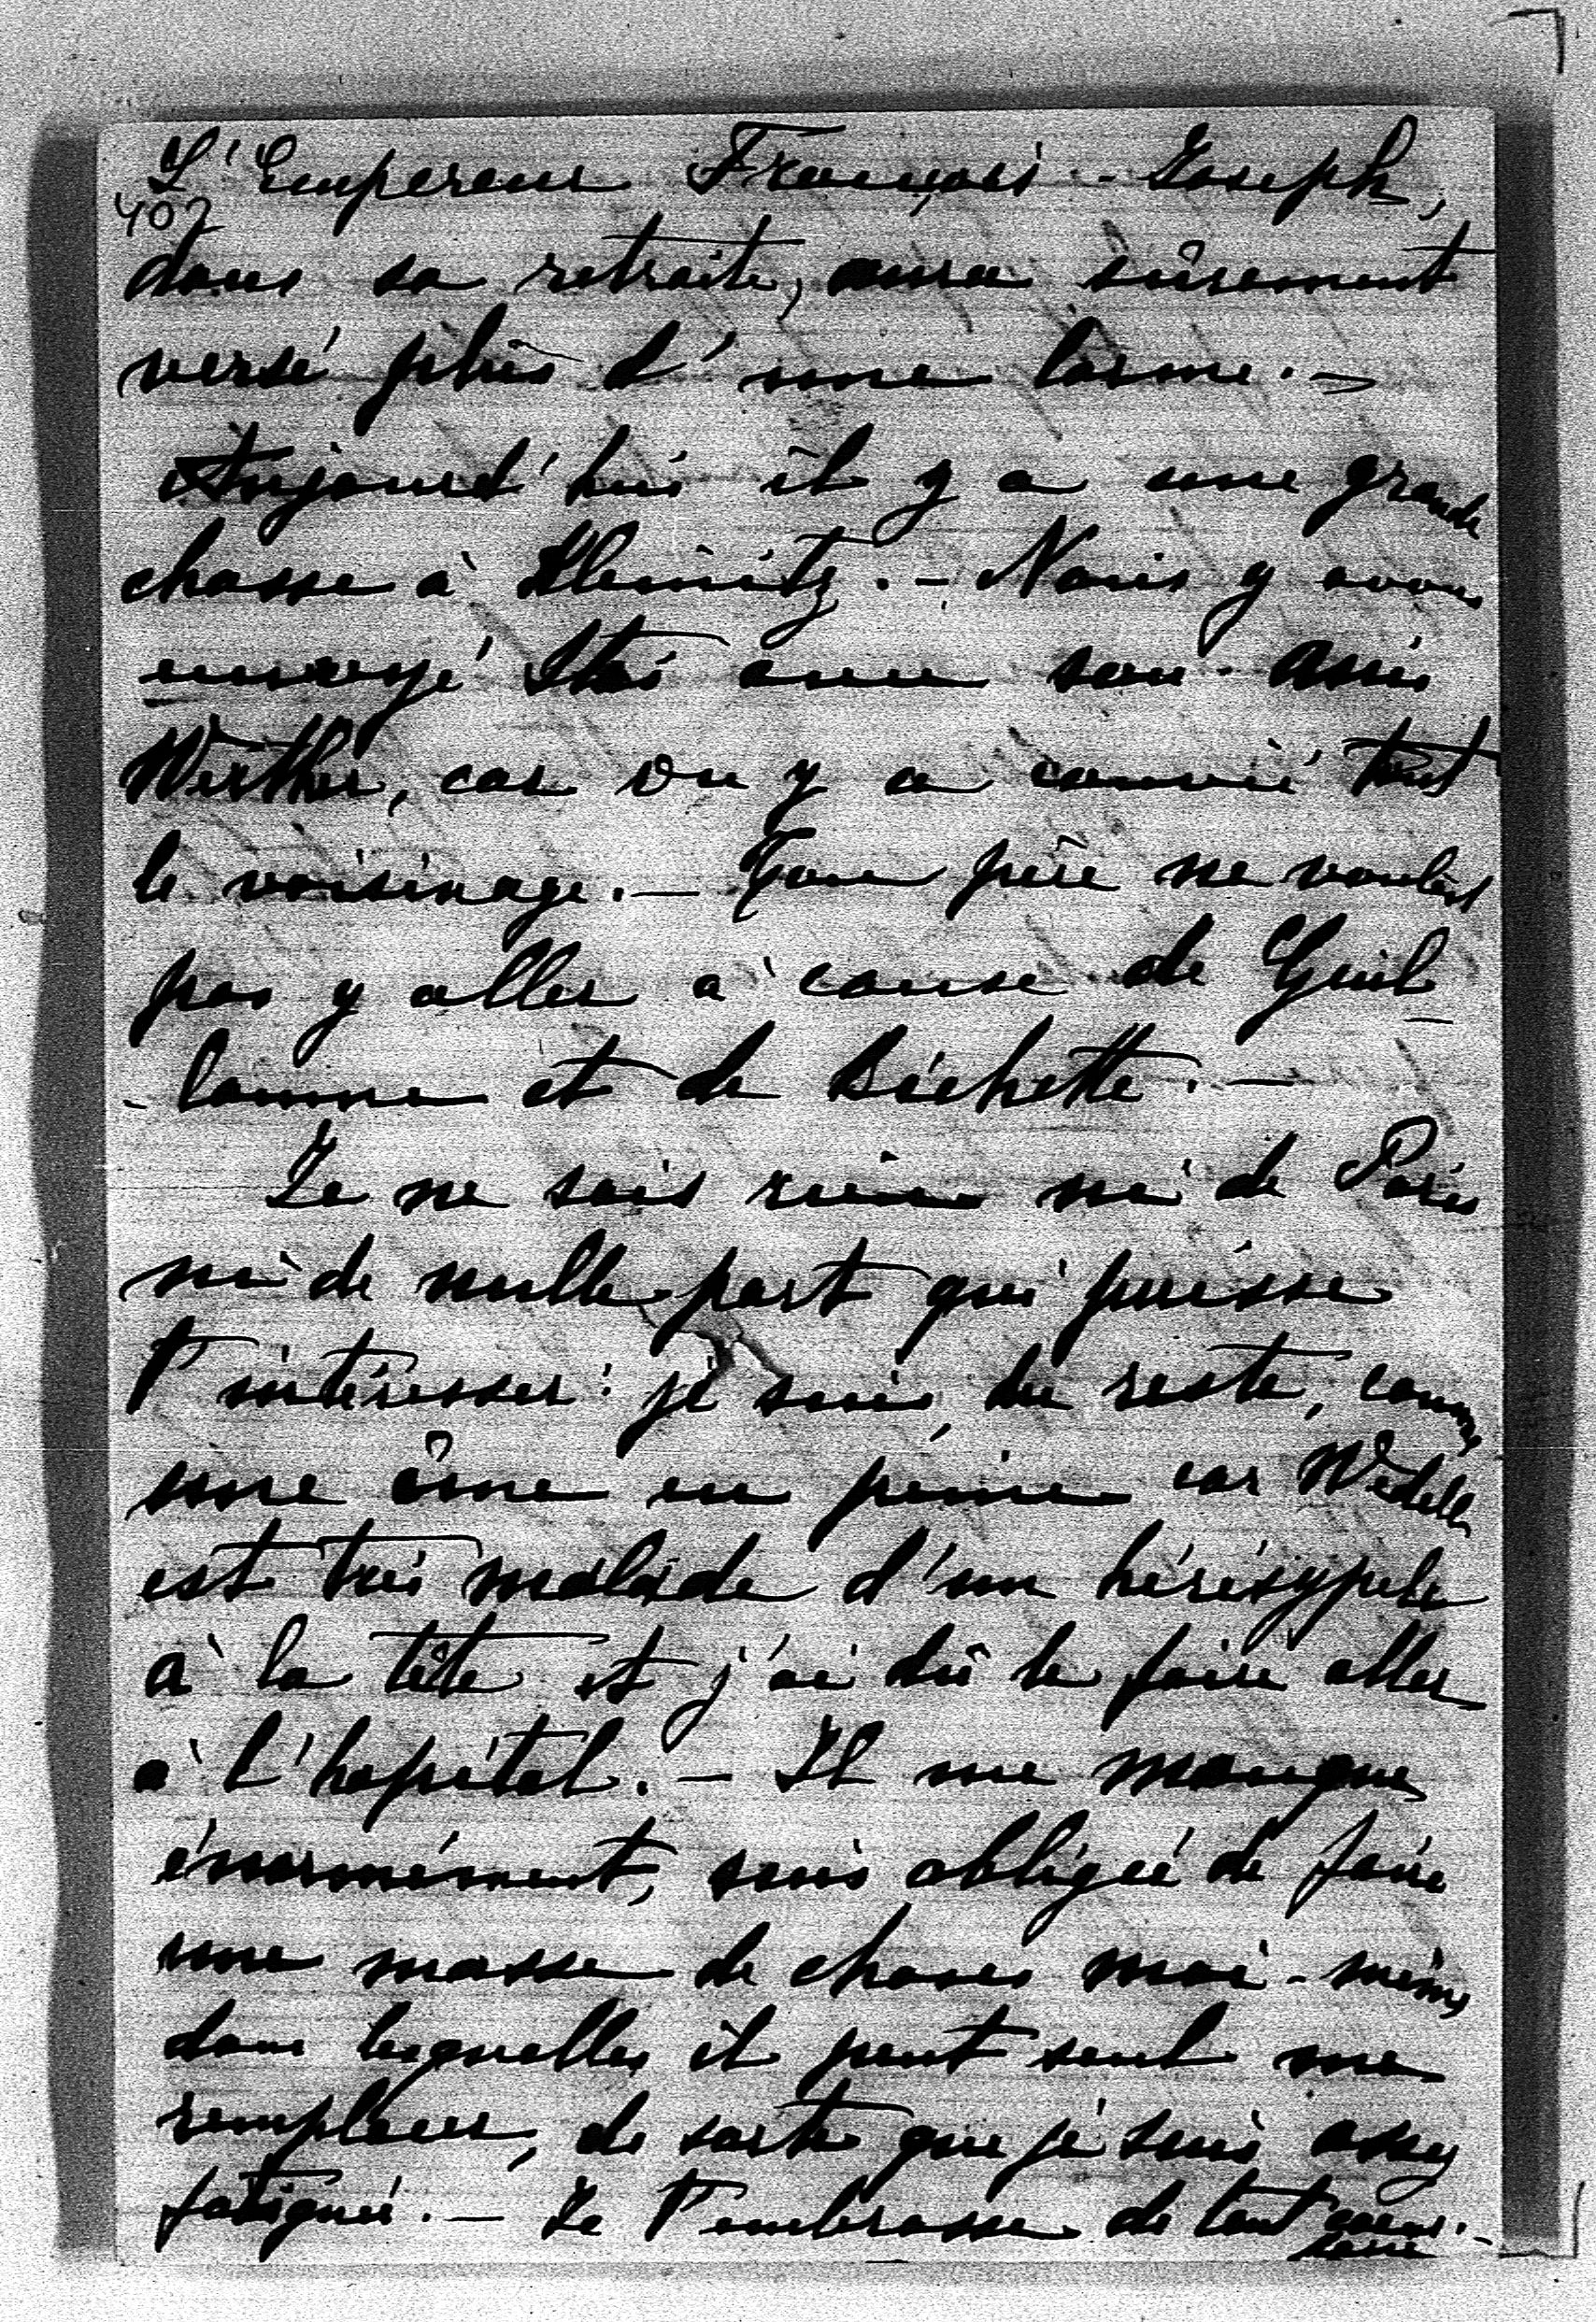 L'Empereur François-Joseph,
407
dans sa retraite, aura sûrement
versé plus d'une larme. –
Aujourd'hui il y a une grande
chasse à Kleinitz. – Nous y avons
envoyé Stas avec son ami
Werther, car on y a convié tout
le voisinage. – Ton père ne voulait
pas y aller à cause de Guil
-laume et de Bichette. –
Je ne sais rien ni de Paris
ni de nulle part qui puisse
t'intéresser : je suis, du reste, comme
une âme en peine car Wedell
est très malade d'un hérésypele
à la tête et j'ai dû le faire aller
à l'hopital. – Il me manque
énormément, suis obligée de faire
une masse de choses moi-même
dans lesquelles il peut seul me
remplacer, de sorte que je suis assez
fatiguée. – Je t'embrasse de tout coeur. –